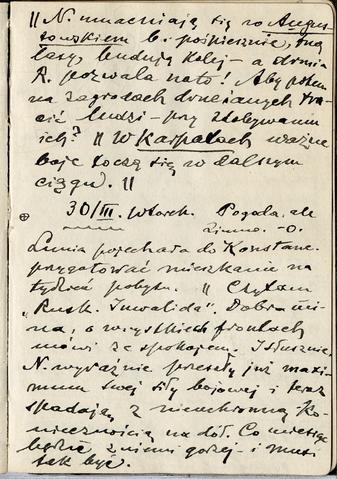 || N. umacniają się w Augus-
towskiem b. pośpiesznie, tną
lasy, budują kolej – a armia
R. pozwala na to! Aby potem
na zagrodach drucianych tra-
cić ludzi – przy zdobywaniu
ich? || W Karpatach ważne
boje toczą się w dalszym
ciągu. ||
30/III. wtorek. Pogoda, ale
zimno. –0.
Lunia pojechała do Konstanc.
przygotować mieszkanie na
tydzień pobytu. || Czytam
„Rusk. Inwalida”. Dobra mi-
na, o wszystkich frontach
mówi ze spokojem. I słusznie,
N. wyraźnie przeszły już maxi-
mum swej siły bojowej i teraz
spadają z nieuchronną ko-
niecznością na dół. Co miesiąc
będzie z niemi gorzej – i musi
tak być.